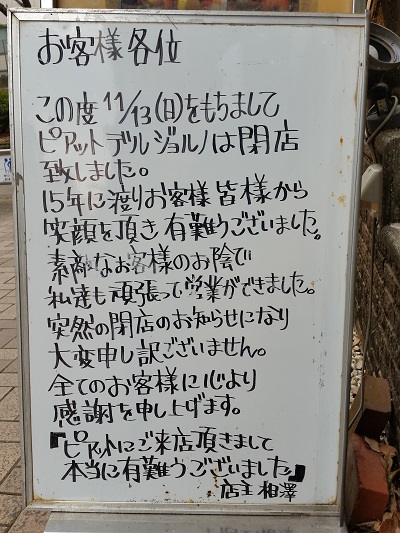 お客様各位
この度11/13(日)をもちまして
ピアットデルジョルノは閉店
致しました。
15年に渡りお客様皆様から
笑顔を頂き有難うございました。
素敵なお客様のお陰で
私達も頑張って営業ができました。
突然の閉店のお知らせになり
大変申し訳ございません。
全てのお客様に心より
感謝を申し上げます。
『ピアットにご来店頂きまして
本当に有難うございました』
店主 相澤